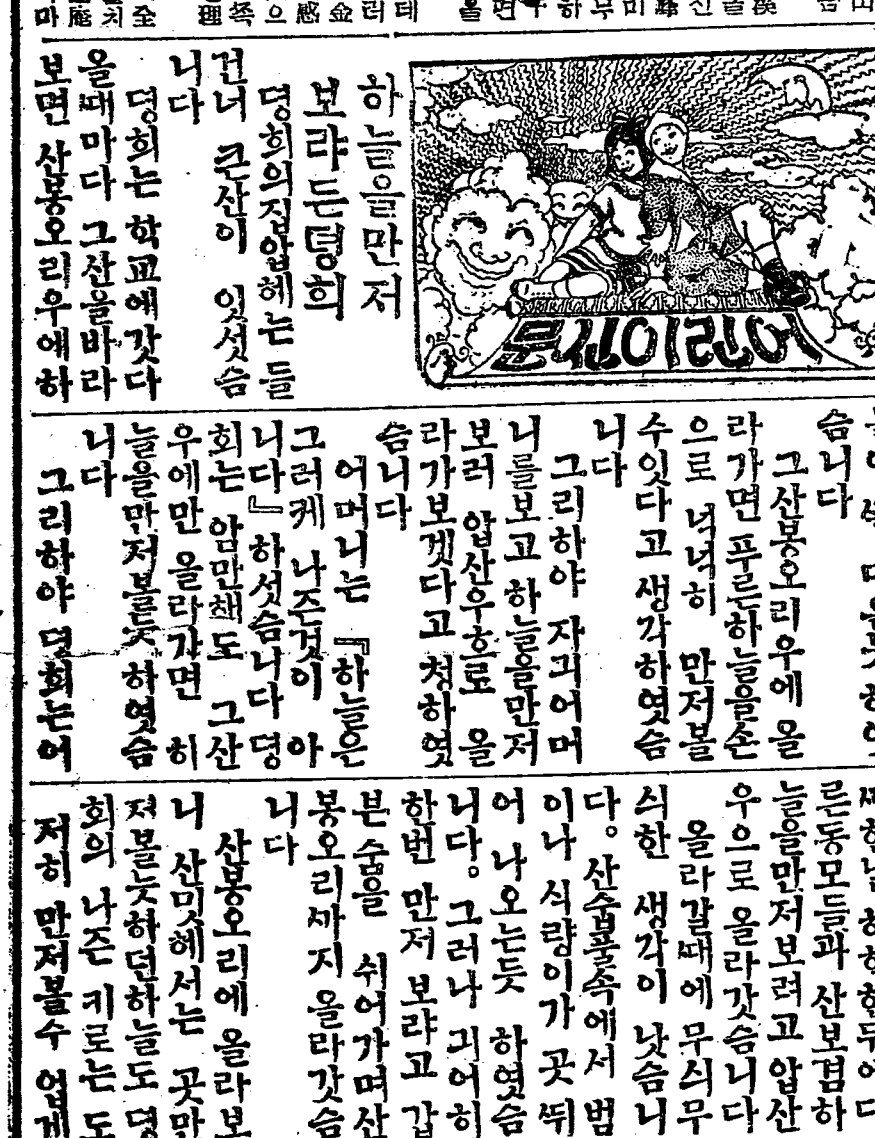 어린이신문
하늘을만저
보랴든뎡희
뎡희의집압헤는 들
건너 큰산이 잇섯슴
니다
뎡희는 학교에갓다
올ᄯᅢ마다 그산을바라
보면 산봉오리우에하
슴니다
그산봉오리우에 올
라가면 푸른하늘을손
으로 넉넉히 만저볼
수잇다고 생각하엿슴
니다
그리하야 자긔어머
니를보고 하늘을만저
보러 압산우흐로 올
라가보겟다고 청하엿
슴니다
어머니는 『하늘은
그러케 나즌것이 아
니다』하섯슴니다 뎡
희는 암만해도 그산
우에만 올라가면 하
늘을만저볼듯 하엿슴
니다
그리하야 뎡희는어
른동모들과 산보겸하
늘을만저보려고 압산
우으로 올라갓슴니다
올라갈ᄯᅢ에 무싀무
싀한 생각이 낫슴니
다。산숩풀속에서 범
이나 식량이가 곳 ᄯᅱ
어 나오는듯 하엿슴
니다。그러나 긔어히
한번 만저 보랴고 갑
븐 숨을 쉬여가며산
봉오리ᄭᅡ지 올라갓슴
니다
산봉오리에 올라보
니 산밋헤서는 곳만
저볼듯하던하늘도 뎡
희의 나즌 키로는 도
저히 만저볼수 업게